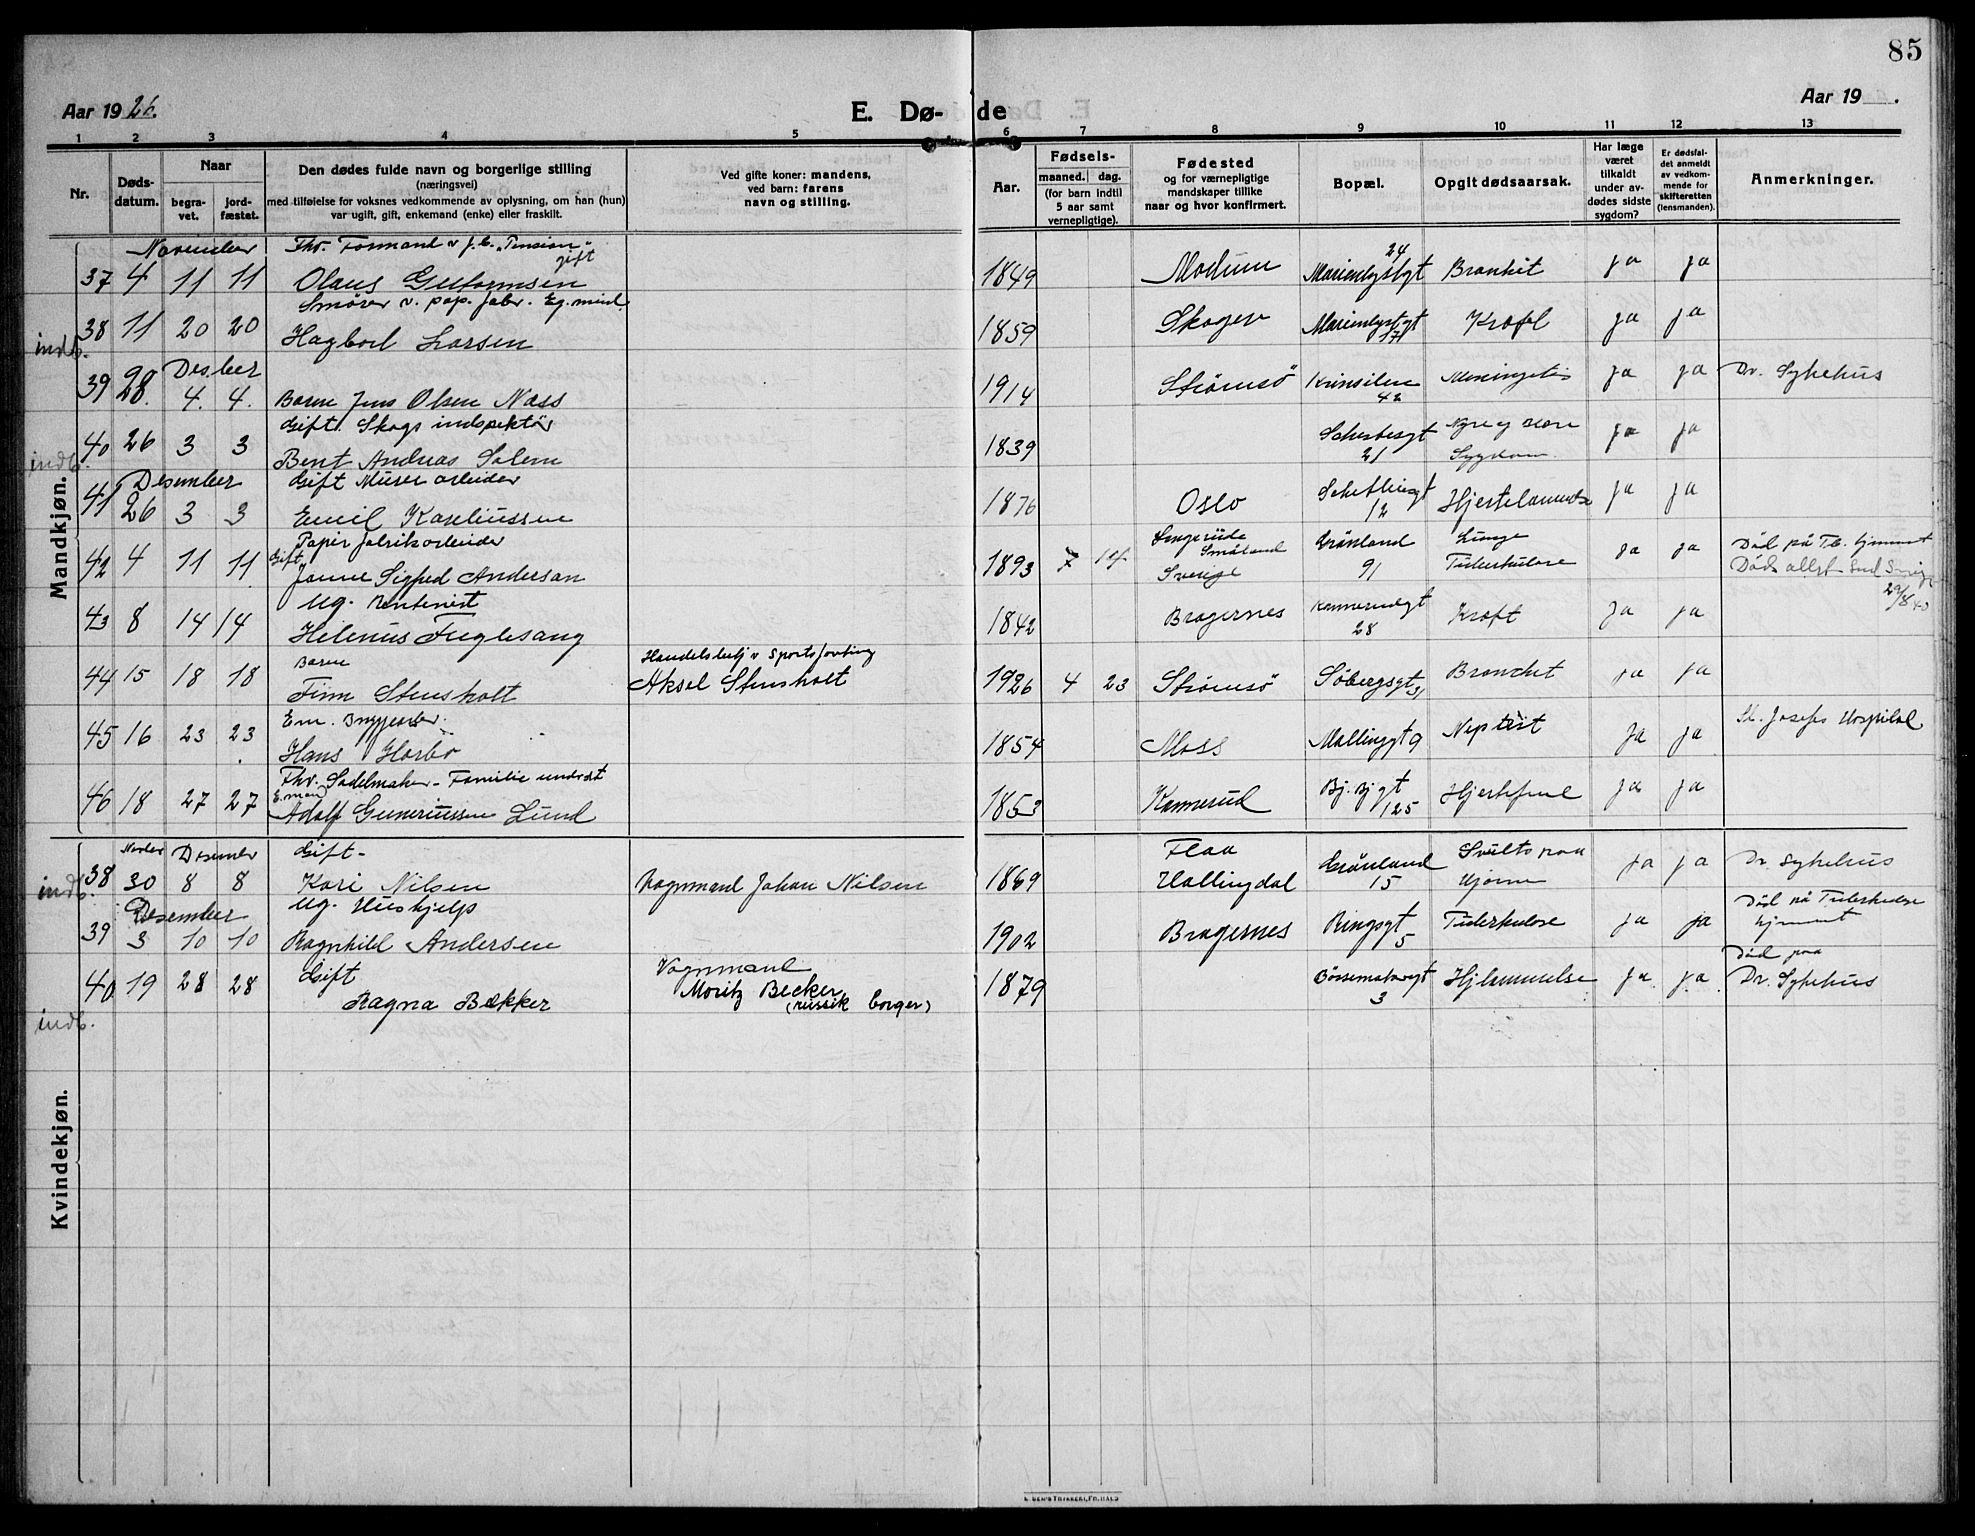 85
Aar 1926.
E. Dø-
de
Aar 19 .
1 2 3 4 5 6 7 8 9 10 11 12 13
Nr.
Døds-
datum.
Naar
begra-
vet.
jord-
fæstet.
Den dødes fulde navn og borgerlige stilling
(næringsvei)
med tilføielse for voksnes vedkommende av oplysning, om han (hun)
var ugift, gift, enkemand (enke) eller fraskilt.
Ved gifte koner: mandens,
ved barn: farens
navn og stilling.
Aar.
Fødsels-
maaned. dag.
(for barn indtil
5 aar samt
vernepligtige).
Fødested
og for værnepligtige
mandskaper tillike
naar og hvor konfirmert.
Bopæl.
Opgit dødsaarsak.
Har læge
været
tilkaldt
under av-
dødes sidste
sygdom?
Er dødsfal-
det anmeldt
av vedkom-
mende for
skifteretten
(lensmanden).
Anmerkninger.
Mandkjøn.
November Fhv. Formand v J.b. "Pension" gift 24
37 4 11 11 Olaus Guttormsen 1849 Modum Marienlystgt Bronkit ja ja
Smører v. pap. fabr.
38 11 20 20 Hagbart Larsen 1859 Skoger Marienlystgt 17 Kræft ja ja
indb.
Des.ber
39 28. 4. 4. Barn Jens Olsen Næss 1914 Strømsø 42 Meningitis ja ja Dr. Sykehus
Gift. Skogs indspektør
40 26 3 3 Bent Andreas Solem 1839 21 Sygdom ja ja
indb.
Desember Gift Murer arbeider
41 26 3 3 Emil Kareliussen 1876 Oslo 12 Hjertelammelse ja ja
Papir fabrikarbeider Småland Grønland Lunge Død på T.b. hjemmet
42 4 11 11 Gift Janne Sigfred Anderson 1893 7 14 Sverige 91 Tuberkulose ja ja
Ug. Rentenist
43 8 14 14 Helenus Fuglesang 1842 Bragernes 28 Kræft Ja ja
Barn
44 15 18 18 Finn Stensholt Aksel Stensholt 1926 4 23 Strømsø Søbergsgt Bronchit ja ja
Em. Bryggearb. St. Josefs Hospital
45 16 23 23 Hans Horbo 1854 Moss Mallinggt 9 Ja ja
Fhv. Sadelmaker - Familie undrdt
46 18 27 27 E.mand Adolf Guneriussen Lund 1853 Konnerud Bj. Bj gt 125 Hjertefeil ja ja
Kvindekjøn.
Novber Desember Gift- Flaa
38 30 8 8 Kari Nilsen Vognmand Johan Nilsen 1869 Hallingdal Grønland 15 Svulst paa Hjerne ja ja Dr. Sykehus
indb.
Desember Ug. Hushjelp Død på Tuberkulose
39 3 10 10 Ragnhild Andersen 1902 Bragernes Ringsgt 5 Tuberkulose ja ja hjemmet
Gift Vognmand Død paa
40 19 28 28 Ragna Bække​r Moritz Becker 1879 Børsemakergt 3 Hjlammelse ja ja Dr. Sykehus
indb.
(russik borger)